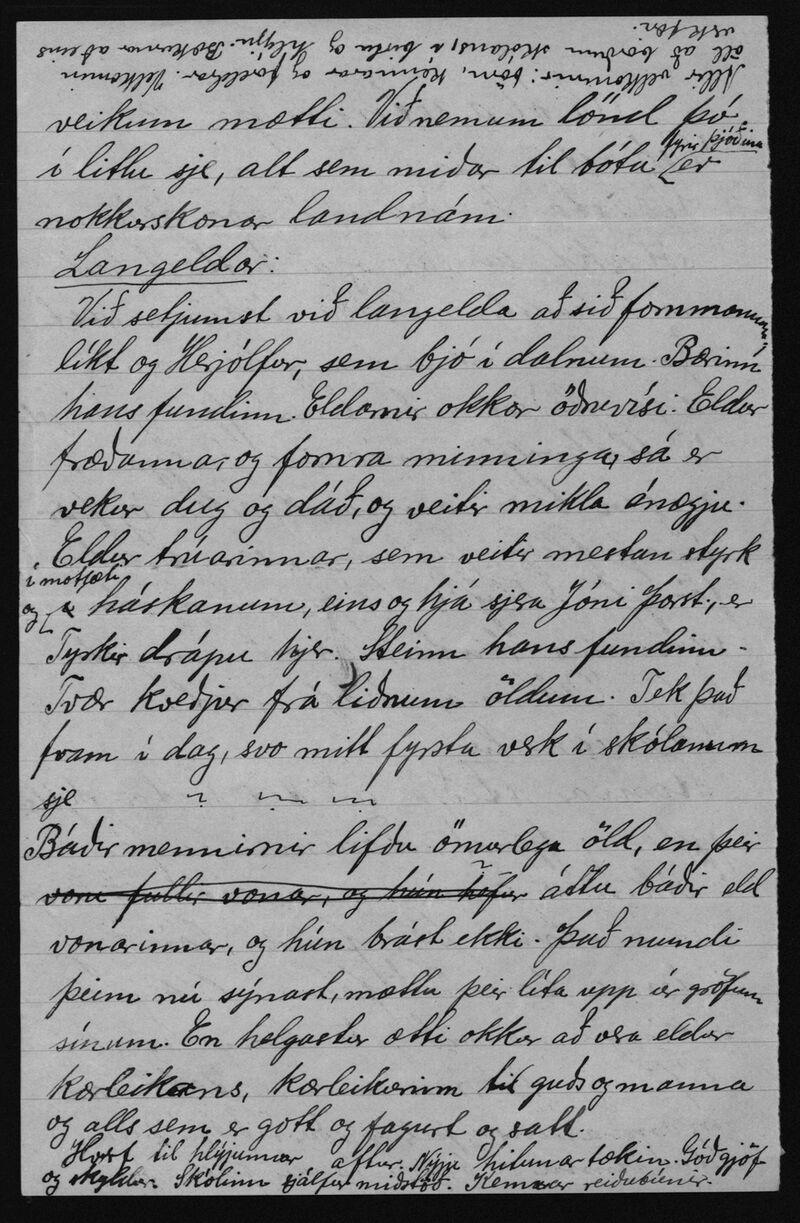 veikum mætti. Við nemum lönd þó
í litlu sje, alt sem miðar til bóta fyrir þjóðina er
nokkurskonar landnám.
Langeldar:
Við setjumst við langelda að sið fornmanna,
líkt og Herjólfur, sem bjó í dalnum. Bærinn
hans fundinn. Eldarnir okkar öðruvísi. Eldur
fræðanna, og fornra minninga, sá er
vekur dug og dáð, og veitir mikla ánægju.
Eldur trúarinnar, sem veitir mestan styrk
í mótlæti
og á háskanum, eins og hjá sjera Jóni Þorst., er
Tyrkir drápu hjer. Steinn hans fundinn.
Tvær kveðjur frá liðnum öldum. Tek það
fram í dag, svo mitt fyrsta verk í skólanum
sje
Báðir mennirnir lifðu ömurlega öld, en þeir
voru fullir vonar, og hún hefur áttu báðir eld
vonarinnar, og hún brást ekki. Það mundi
þeim nú sýnast, mættu þeir líta upp úr gröfum
sínum. En helgastur ætti okkur að vera eldur
kærleikans, kærleikurinn til guðs og manna
og alls sem er gott og fagurt og satt.
Horf til hlýjunnar aftur. Nýju hitunartækin. Góð gjöf
og skyldur. Skólinn sjálfur miðstöð. Kennarar reiðubúnir.
Allir velkomnir: börn, kennarar og foreldrar. Velkomin
öll að borðum skólans, í birtu og hlýju. Bækurnar aðeins